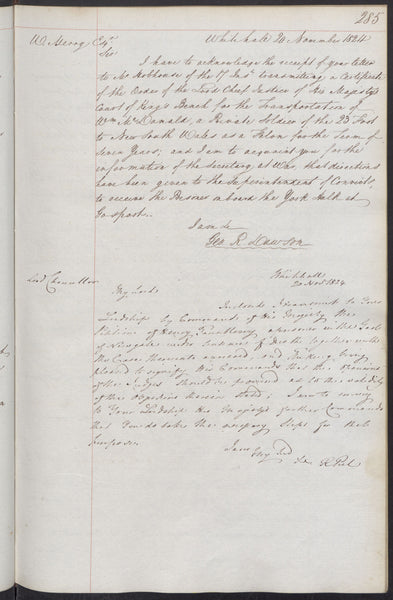 285
Whitehall 20 November 1824
W. Merry Esqr
Sir
I have to acknowledge the receipt of your letter
to Mr Hobhouse of the 17 Inst. transmitting a Certificate
of the Order of the Lord Chief Justice of His Majesty's
Court of King's Bench for the Transportation of
Wm McDonald, a Private Soldier of the 23 Foot
to New South Wales as a Felon for the Term of
Seven Years; and I am to acquaint you for the
information of the Secretary at War, that directions
have been given to the Superintendent of Convicts,
to receive the Prisoner on board the York Hulk at
Gosport.
I am &c
Geo. R. Dawson
Lord Chancellor
Whitehall
20 Novr 1824
My Lord,
Inclosed I transmit to Your
Lordship by Command of His Majesty the
Petition of Henry Fauntleroy a prisoner in the Gaol
of Newgate under Sentence of Death together with
the Case thereunto annexed, and the King being
pleased to signify His Commands that the Opinions
of the Judges should be
of the Objections therein stated; I am to convey
to Your Lordship His Majesty's further Commands
that You do take the necessary Steps for that
purpose.
I am
My Lord
&c R Peel